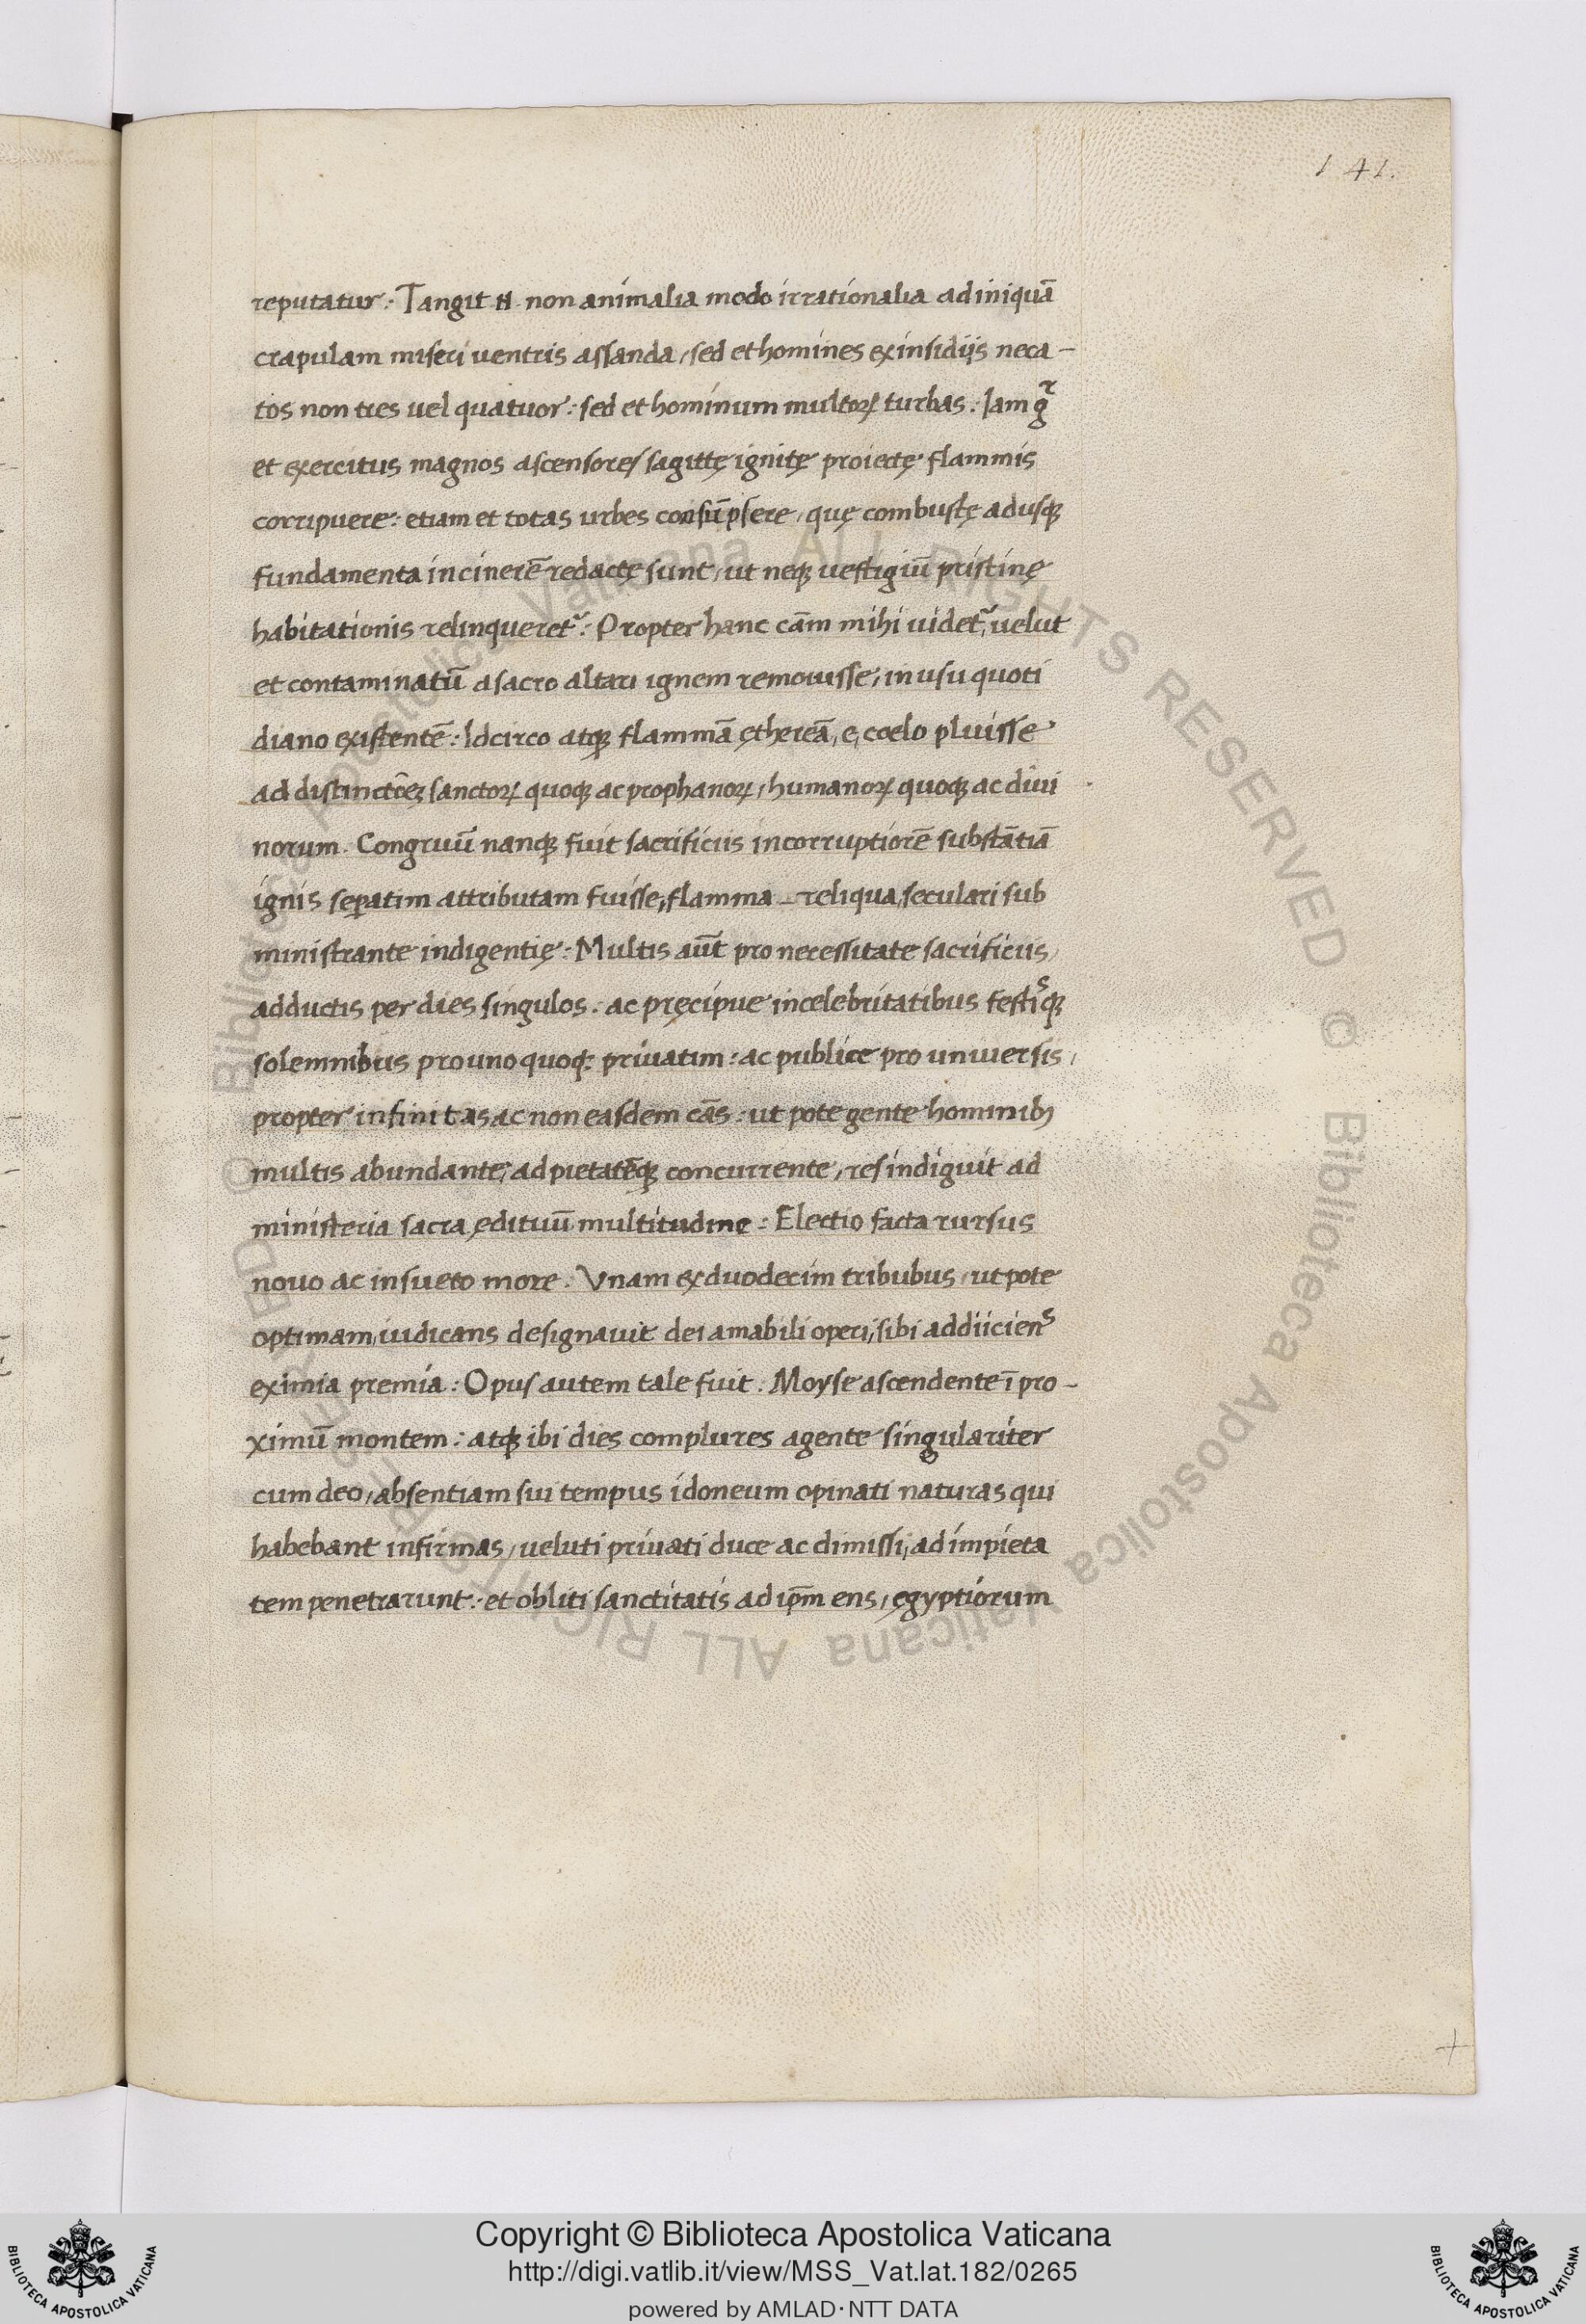 141.
reputatur: Tangit .N. non animalia modo irrationalia ad iniquā
crapulam miseri ventris assanda, sed et homines ex insidijs neca-
tos non tres vel quatuor: sed et hominum multoꝝ turbas: Iam gͬ
et exercitus magnos ascensores sagittę ignitę proiectę flammis
corripuere: etiam et totas urbes consūpsere, quę combustę ad usqꝫ
fundamenta in cinerē redactę sunt, ut neqꝫ vestigiū pristinę
habitationis relinqueret᷑: Propter hanc cām mihi videt᷑, velut
et contaminatū a sacro altari ignem removisse, in usu quoti
diano existentē: Idcirco atqꝫ flammā ętherēā, e, coelo pluisse
ad distinctōēꝫ sanctoꝝ quoqꝫ ac prophanoꝝ, humanoꝝ quoqꝫ ac divi
norum. Congruū nanqꝫ fuit sacrificiis incorruptiorē substātiā
ignis seꝑatim attributam fuisse, flamma - reliqua, seculari sub
ministrante indigentię: Multis aūt pro necessitate sacrificiis,
adductis per dies singulos: ac pręcipue in celebritatibus festisqꝫ
solemnibus pro uno quoqꝫ: privatim: ac publice pro universis,
propter infinitas ac non easdem cās: ut pote gente hominibꝫ
multis abundante, ad pietatēqꝫ concurrente, res indiguit ad
ministeria sacra ędituū multitudine: Electio facta rursus
novo ac insueto more. Vnam ex duodecim tribubus, ut pote
optimam, iudicans designavit dei amabili operi, sibi addiiciens
eximia premia: Opus autem tale fuit: Moyse ascendente ī pro-
ximū montem: atqꝫ ibi dies complures agente singulariter
cum deo, absentiam sui tempus idoneum opinati naturas qui
habebant infirmas, veluti privati duce ac dimissi, ad impieta
tem penetrarunt: et obliti sanctitatis ad ip̄m ens, ęgyptiorum
Copyright © Biblioteca Apostolica Vaticana
http://digi.vatlib.it/view/MSS_Vat.lat.182/0265
powered by AMLAD·NTT DATA
BIBLIOTECA APOSTOLICA VATICANA
BIBLIOTECA APOSTOLICA VATICANA
© Biblioteca Apostolica Vaticana ALL RIGHTS RESERVED © Biblioteca Apostolica Vaticana ALL RIGHTS RESERVED